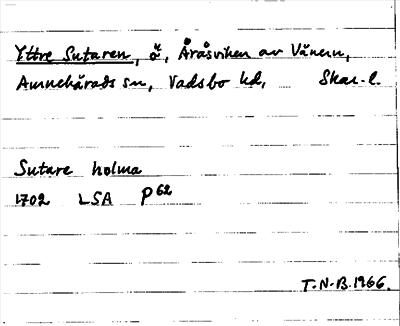 Yttre Sutaren, ö, Åråsviken av Vänern,
Amnehärads sn, Vadsbo hd, Skar. l.
Sutare holma
1702 LSA P 62
T.N-B. 1966.